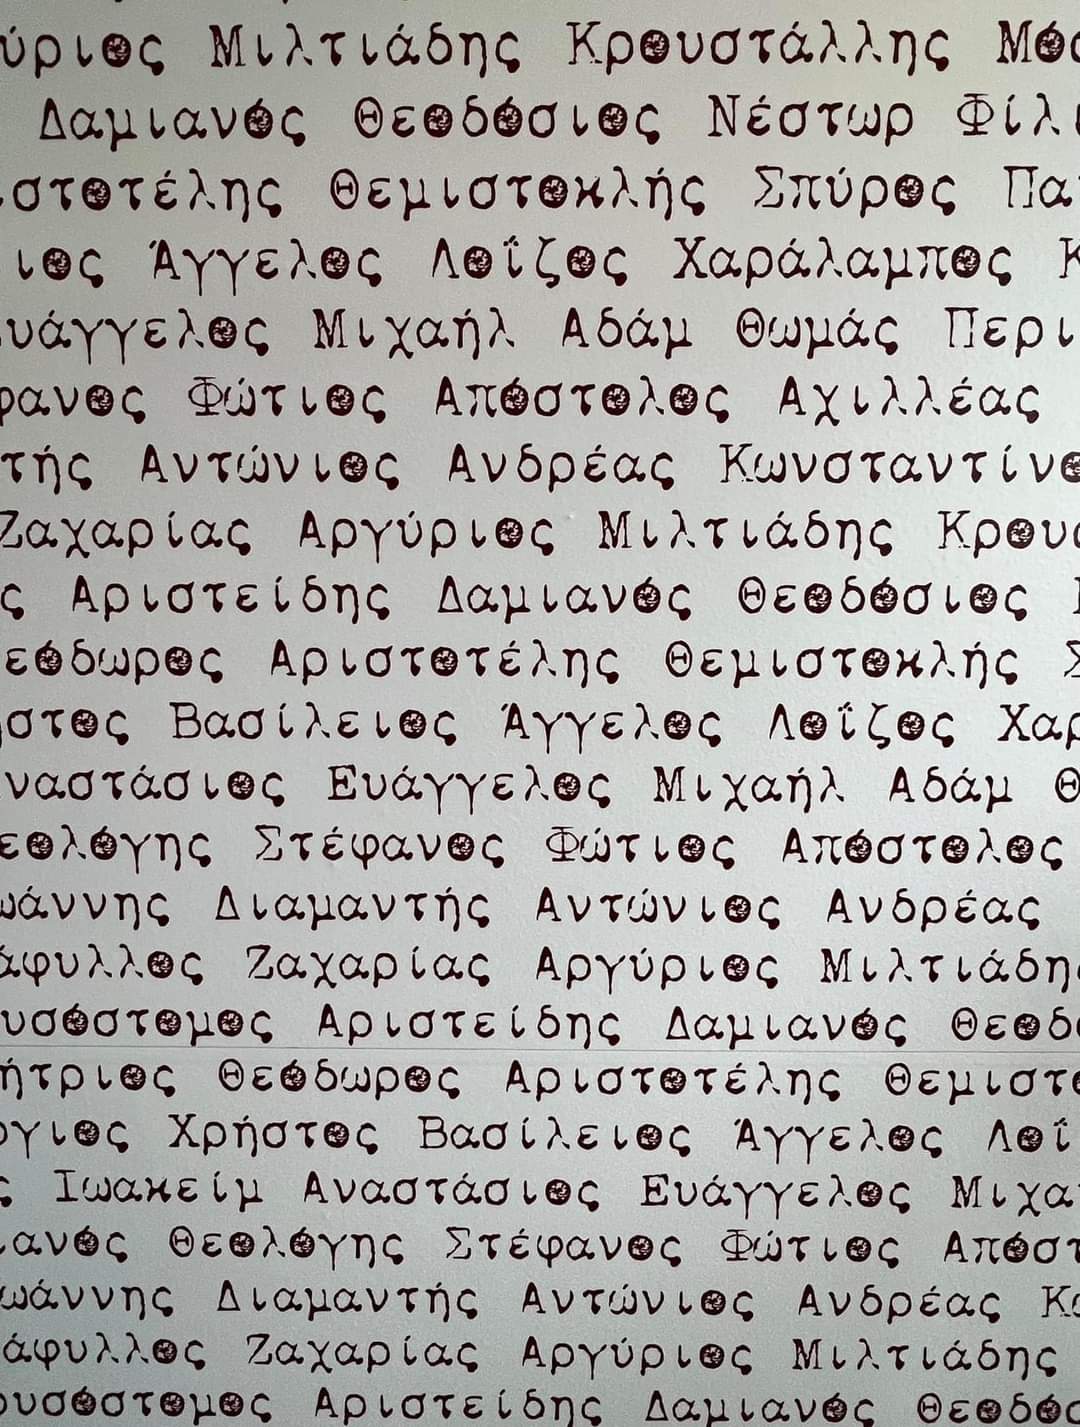 ύριος Μιλτιάδης Κρουστάλλης Μό
Δαμιανός Θεοδόσιος Νέστωρ Φίλι
ιστοτέλης Θεμιστοκλής Σπύρος Πα
ιος Άγγελος Λοΐζος Χαράλαμπος Κ
υάγγελος Μιχαήλ Αδάμ Θωμάς Περι
φανος Φώτιος Απόστολος Αχιλλέας
τής Αντώνιος Ανδρέας Κωνσταντίνο
Ζαχαρίας Αργύριος Μιλτιάδης Κρου
ς Αριστείδης Δαμιανός Θεοδόσιος
εόδωρος Αριστοτέλης Θεμιστοκλής Σ
ήστος Βασίλειος Άγγελος Λοΐζος Χαρ
ναστάσιος Ευάγγελος Μιχαήλ Αδάμ Θ
εολόγης Στέφανος Φώτιος Απόστολος
ωάννης Διαμαντής Αντώνιος Ανδρέας
άφυλλος Ζαχαρίας Αργύριος Μιλτιάδη
υσόστομος Αριστείδης Δαμιανός Θεοδ
ήτριος Θεόδωρος Αριστοτέλης Θεμιστο
ργιος Χρήστος Βασίλειος Άγγελος Λοΐ
ς Ιωακείμ Αναστάσιος Ευάγγελος Μιχα
ιανός Θεολόγης Στέφανος Φώτιος Απόστ
ωάννης Διαμαντής Αντώνιος Ανδρέας Κω
άφυλλος Ζαχαρίας Αργύριος Μιλτιάδης
ρυσόστομος Αριστείδης Δαμιανός Θεοδόσ